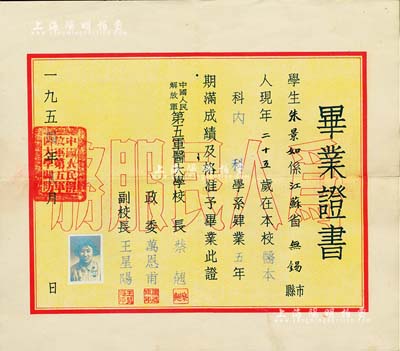 上海陽明拍賣
畢業證書
學生朱景如係江蘇省無錫市縣
人現年二十五歲在本校醫本
科內科學系肄業五年
期滿成績及格准予畢業此證
中國人民解放軍第五軍醫大學校長蔡翹
政委萬恩甫
副校長王星陽
一九五 年 月 日
為人民服務
上海陽明拍賣